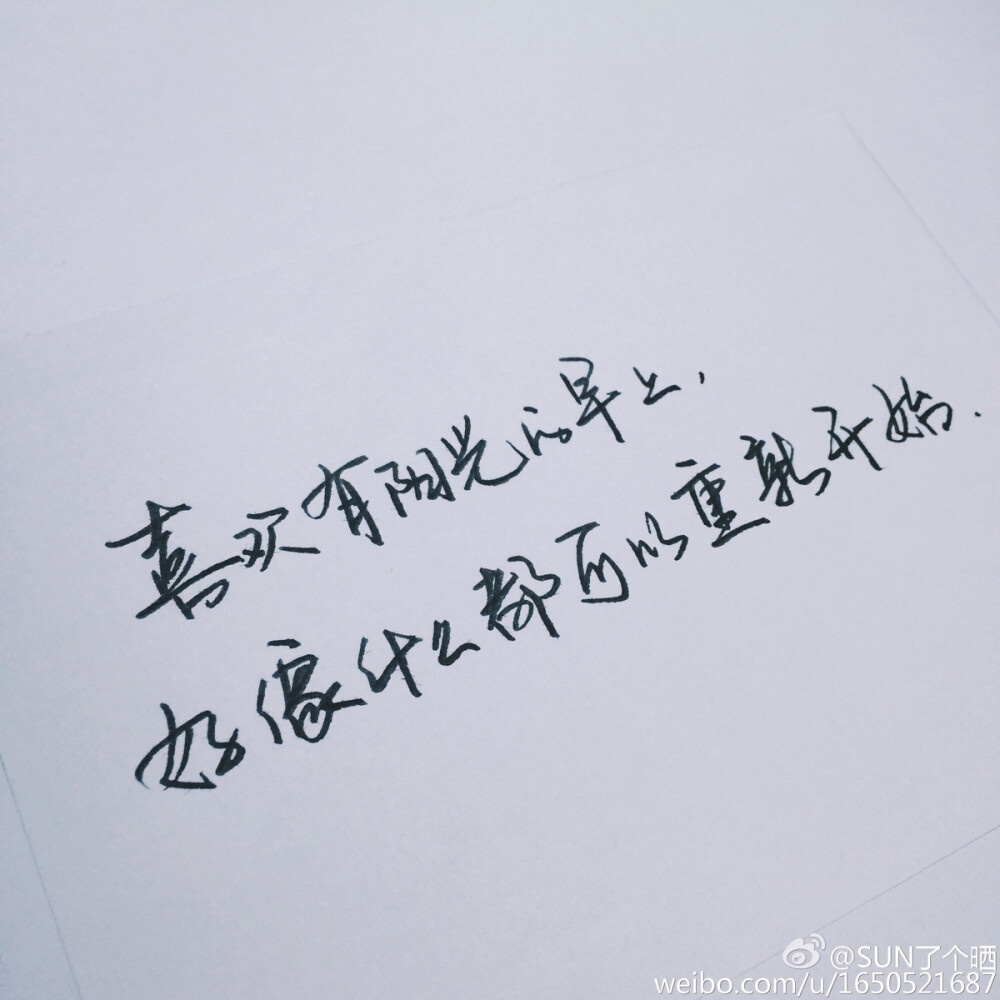 喜欢有阳光的早上，
好像什么都可以重新开始.
@SUN了个晒
weibo.com/u/1650521687